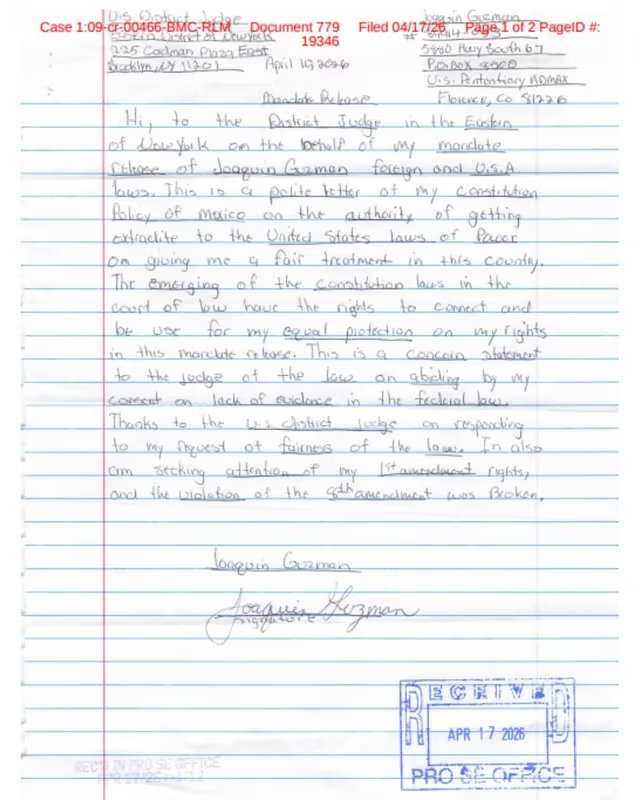 Case 1:09-cr-00466-BMC-RLM Document 779 Filed 04/17/26 Page 1 of 2 PageID #: 19346
U.S District Judge
Eastern District of New York
225 Cadman Plaza East
Brooklyn, NY 11201
April 10, 2026
Joaquin Guzman
#
5880 Hwy South 67
P.O. Box 8500
U.S. Penitentiary ADMAX
Florence, CO 81226
Mandate Release
Hi, to the District Judge in the Eastern
of New York on the behalf of my mandate
release of Joaquin Guzman foreign and U.S.A
laws. This is a polite letter of my constitution
Policy of mexico on the authority of getting
extradite to the United States laws of Power
on giving me a fair treatment in this country.
The emerging of the constitution laws in the
court of law have the rights to connect and
be use for my equal protection on my rights
in this mandate release. This is a concern statement
to the judge of the law on abiding by my
consent on lack of evidence in the federal law.
Thanks to the U.S District Judge on responding
to my request of fairness of the law. In also
am seeking attention of my 1st amendment rights,
and the violation of the 8th amendment was Broken.
Joaquin Guzman
Joaquin Guzman
Signature
RECEIVED
APR 17 2026
PRO SE OFFICE
REC'D IN PRO SE OFFICE